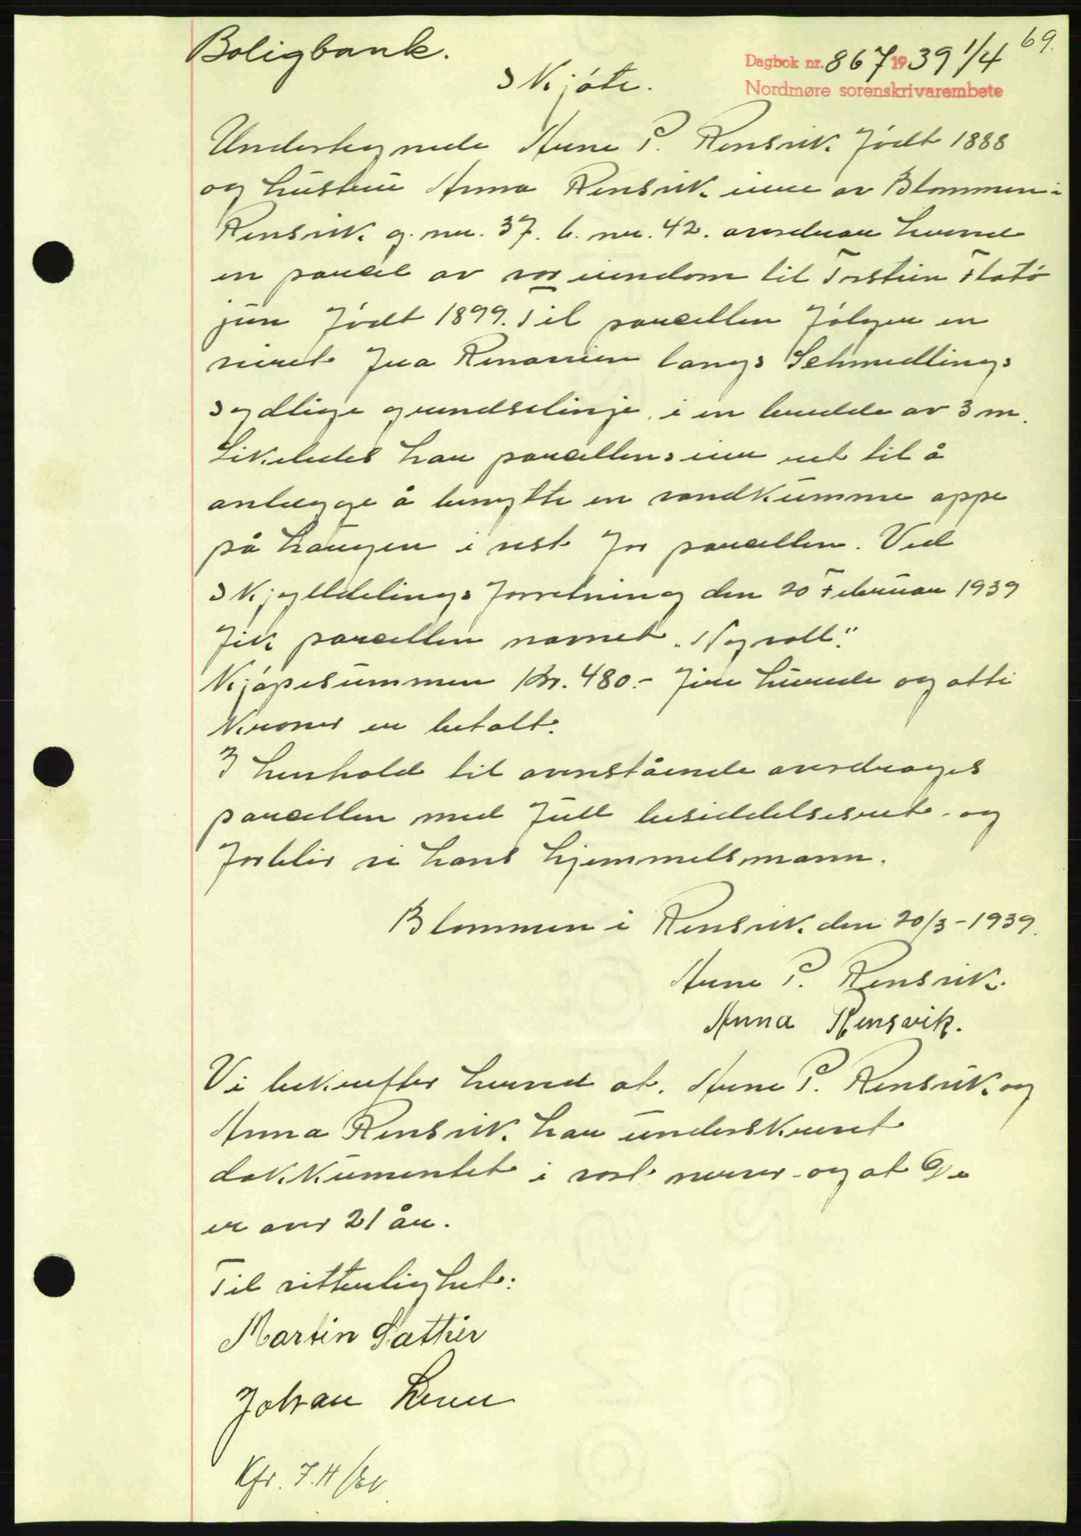 69.
Boligbank.
Dagbok nr. 867 1939 1/4
Nordmøre sorenskrivarembete
Skjøte.
Undertegnede Arne P. Rensvik født 1888
og hustru Anna Rensvik eiere av Blommen i
Rensvik g. nr. 37. b. nr. 42. avsdrar herved
en parcel av vor eiendom til Torstein Flatø
jun født 1899. Til parcellen følger en
veiret fra Renaveien langs Schmedlings
sydlige grundselinje i en bredde av 3 m.
Likeledes har parcellens eier ret til å
anlægge å benytte en vandkumme oppe
på haugen i vest for parcellen. Ved
Skjylddelings forretning den 20 Februar 1939
fik parcellen navnet "Nyvoll".
Kjøpesummen Kr. 480.- fire hundre og otti
Kroner er betalt.
I henhold til ovenstående avsdrages
parcellen med full besiddelsesret og
forblir vi hans hjemmelsmann.
Blommen i Rensvik den 20/3-1939.
Arne P. Rensvik.
Anna Rensvik.
Vi bekrefter herved at. Arne P. Rensvik og
Anna Rensvik har underskrevet
dokkumentet i vort nerver og at De
er over 21 år.
Til vitterlighet:
Martin Sæther
Johan
Kfr. F.H/